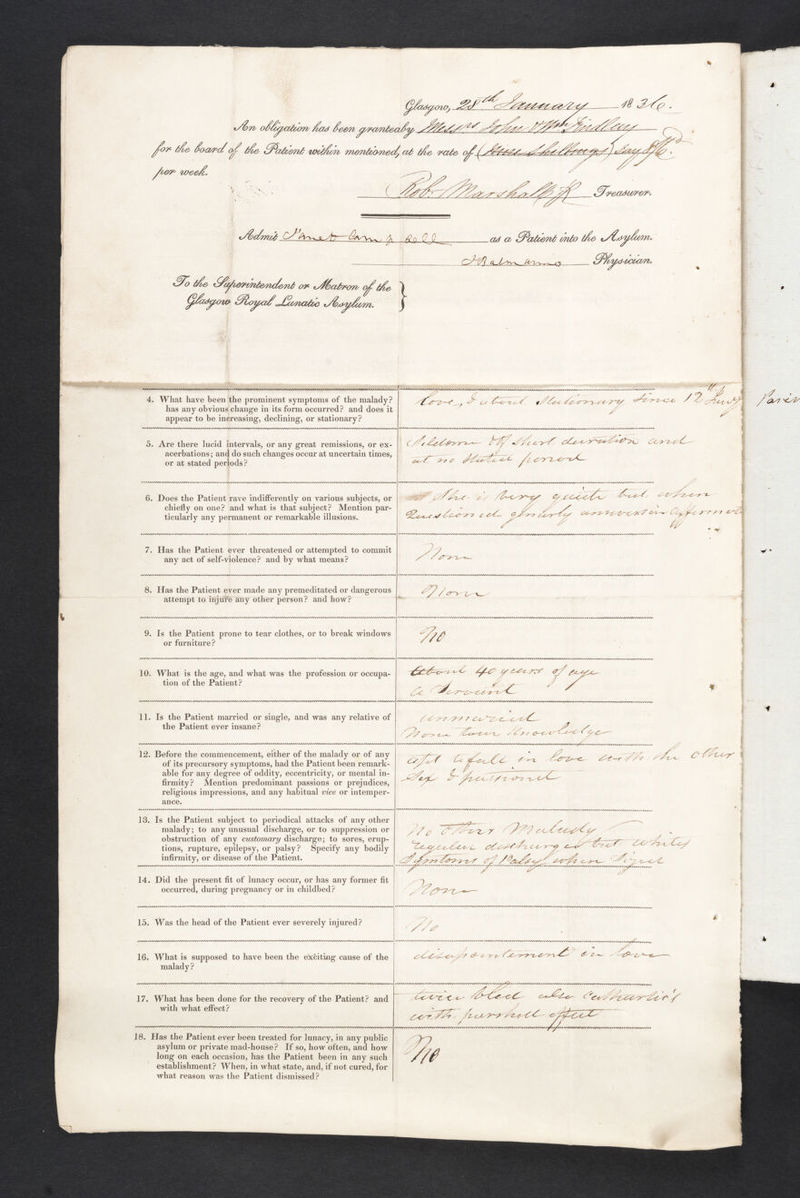 Glasgow, 28th January 1836.
An obligation has been granted by Messrs John & Wm Findlay
for the board of the Patient within mentioned, at the rate of (three shillings) say
per week.
Rob Marshall Jr Treasurer.
Admit Janet Campbell as a Patient into the Asylum.
J Balmanno Physician.
To the Superintendent or Matron of the
Glasgow Royal Lunatic Asylum.
4. What have been the prominent symptoms of the malady?
has any obvious change in its form occurred? and does it
appear to be increasing, declining, or stationary?
love, & about Stationary Since 12th
5. Are there lucid intervals, or any great remissions, or ex-
acerbations; and do such changes occur at uncertain times,
or at stated periods?
Seldom & of short duration and
at no stated period
6. Does the Patient rave indifferently on various subjects, or
chiefly on one? and what is that subject? Mention par-
ticularly any permanent or remarkable illusions.
She is very quiete but when
Questioned answers in
7. Has the Patient ever threatened or attempted to commit
any act of self-violence? and by what means?
None
8. Has the Patient ever made any premeditated or dangerous
attempt to injure any other person? and how?
None
9. Is the Patient prone to tear clothes, or to break windows
or furniture?
No
10. What is the age, and what was the profession or occupa-
tion of the Patient?
About 40 years of age
a Servant
11. Is the Patient married or single, and was any relative of
the Patient ever insane?
unmarried
None to our Knowledge
12. Before the commencement, either of the malady or of any
of its precursory symptoms, had the Patient been remark-
able for any degree of oddity, eccentricity, or mental in-
firmity? Mention predominant passions or prejudices,
religious impressions, and any habitual vice or intemper-
ance.
apt to fall in love with the other
Sex & passionet
13. Is the Patient subject to periodical attacks of any other
malady; to any unusual discharge, or to suppression or
obstruction of any customary discharge; to sores, erup-
tions, rupture, epilepsy, or palsy? Specify any bodily
infirmity, or disease of the Patient.
No other Malady
regular discharges but whites
Symtoms of Palsy when
14. Did the present fit of lunacy occur, or has any former fit
occurred, during pregnancy or in childbed?
None
15. Was the head of the Patient ever severely injured?
No
16. What is supposed to have been the exciting cause of the
malady?
disapointement in love
17. What has been done for the recovery of the Patient? and
with what effect?
twice bled also Cathartic's
with parshell effect
18. Has the Patient ever been treated for lunacy, in any public
asylum or private mad-house? If so, how often, and how
long on each occasion, has the Patient been in any such
establishment? When, in what state, and, if not cured, for
what reason was the Patient dismissed?
No